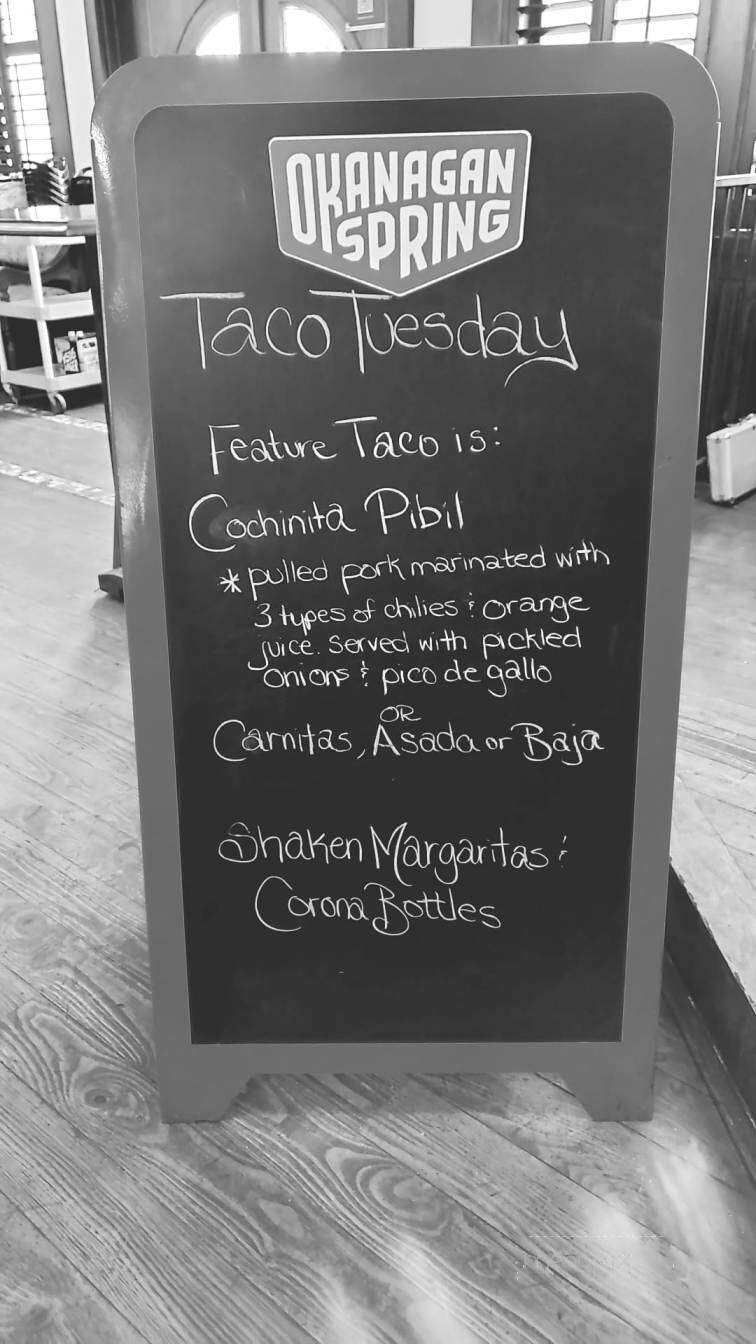 OKANAGAN
SPRING
Taco Tuesday
Feature Taco is:
Cochinita Pibil
* pulled pork marinated with
3 types of chilies & orange
juice. Served with pickled
onions & pico de gallo
OR
Carnitas, Asada or Baja
Shaken Margaritas &
Corona Bottles